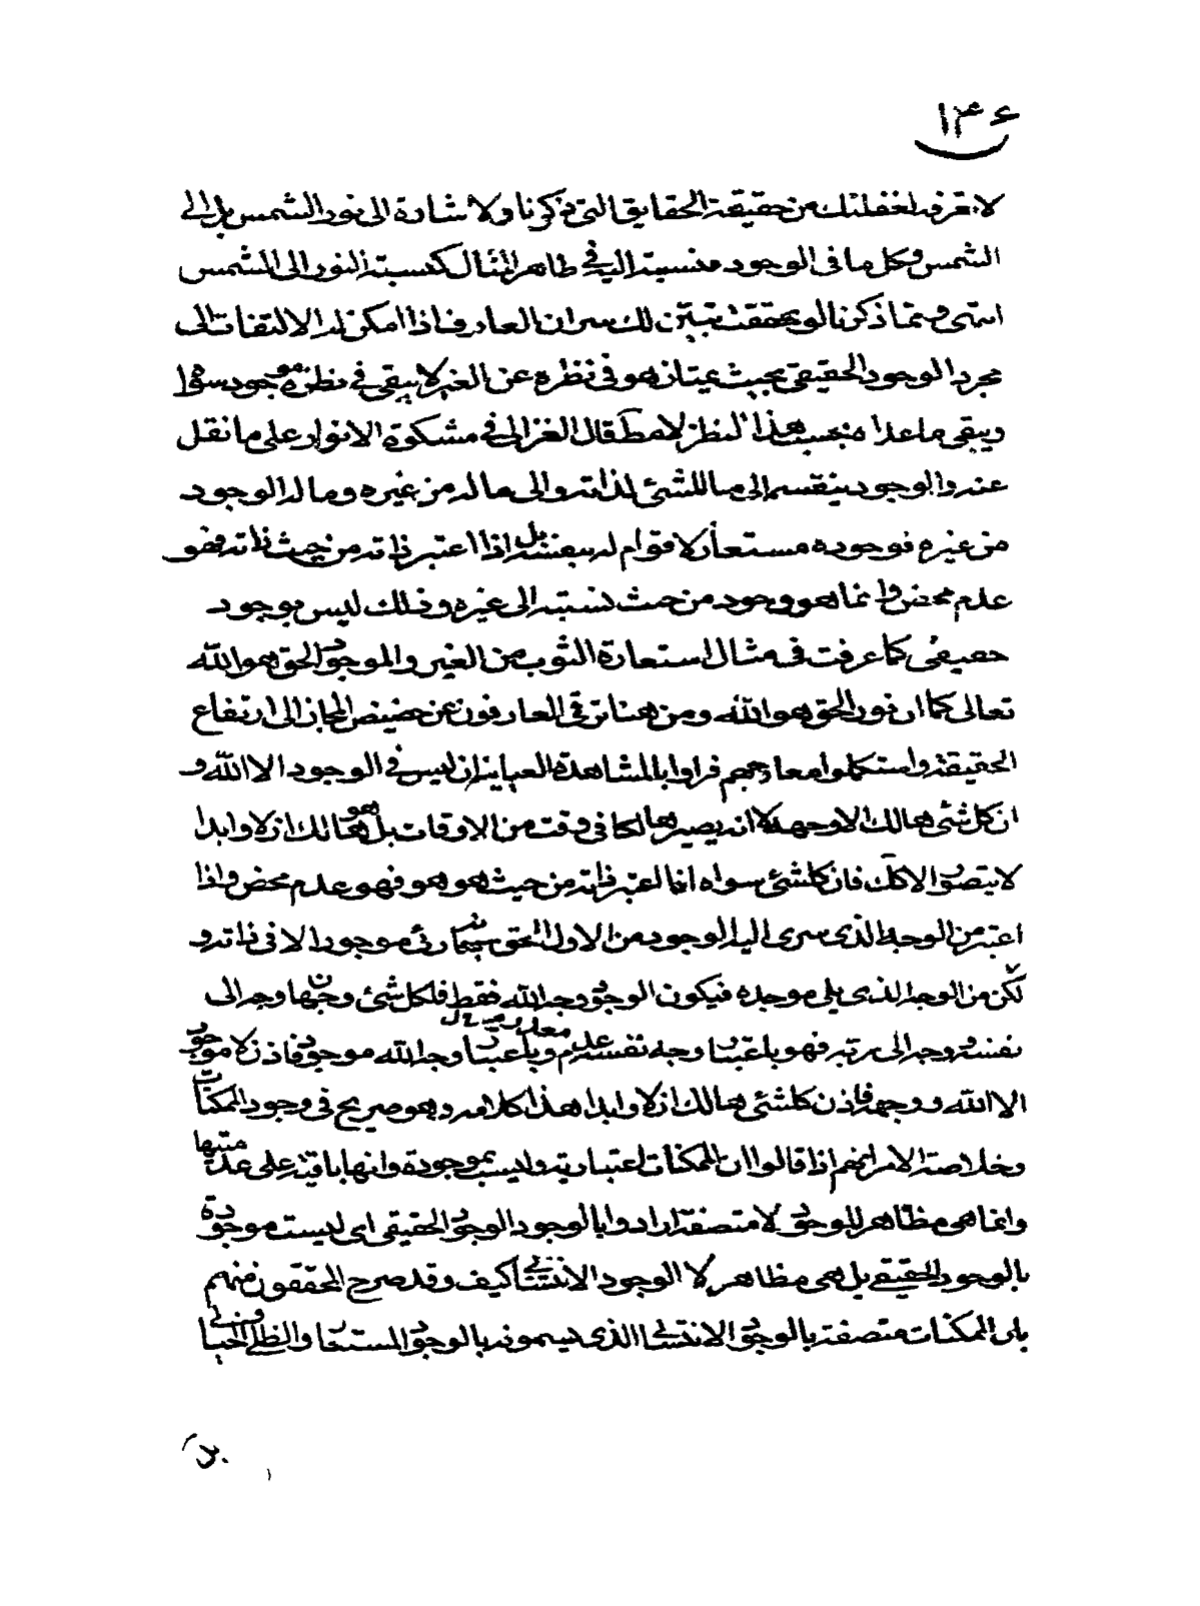 ١٣٤
لا تعرفه لغفلتك من حقيقة الحقايق التى ذكرنا ولا شارة الى نور الشمس بل الى
الشمس وكل ما فى الوجود فنسبته اليه فى ظاهر المثال كنسبة النور الى الشمس
انتهى ومما ذكرنا لو تحققت تبين لك سر ان العارف اذا امكن له الالتفات الى
مجرد الوجود الحقيقى بحيث عينان هو فى نظره عن الغير لا يبقى فى نظره موجود سوا
ويبقى ما عداه بحسب هذا النظر لا قال الغزالى فى مشكوة الانوار على ما نقل
عنه والوجود ينقسم الى ما للشئ لذاته والى ما له من غيره وما له الوجود
من غيره فوجوده مستعار لا قوام له بنفسه بل اذا اعتبر ذاته من حيث ذاته فهو
عدم محض وانما هو وجود من حيث نسبته الى غيره وذلك ليس بوجود
حقيقى كما عرفت فى مثال استعارة الثوب من الغير والموجود الحق هو الله
تعالى كما ان نور الحق هو الله ومن هنا ترقى العارفون عن حضيض المجاز الى ارتفاع
الحقيقة واستكملوا معارجهم فراوا بالمشاهدة العيانية ان ليس فى الوجود الا الله و
ان كل شئ هالك الا وجهه لا انه يصير هالكا فى وقت من الاوقات بل هو هالك ازلا وابدا
لا يتصور الا كك فان كلشئ سواه اذا اعتبر ذاته من حيث هو هو فهو عدم محض واذا
اعتبر من الوجه الذى سرى اليه الوجود من الاول الحق سبحانه رئى موجودا لا فى ذاته و
لكن من الوجه الذى يلى موجده فيكون الوجود وجه الله فقط فلكل شئ وجهان وجه الى
نفسه ووجه الى ربه فهو باعتبار وجه نفسه عدم وباعتبار وجه الله موجود فاذن لا موجود
الا الله ووجهه فاذن كلشئ هالك ازلا وابدا هذا كلامه وهو صريح فى وجود الممكنات
وخلاصة الامر انهم اذا قالوا ان الممكنات اعتبارية وليست بموجودة وانها باقية على عدميتها
وانما هى مظاهر للوجود لا متصفة ارادوا بالوجود الوجود الحقيقى اى ليست موجودة
بالوجود الحقيقى بل هى مظاهر لا الوجود الانتسابى كيف وقد صرح المحققون منهم
بان الممكنات متصفة بالوجود الانتسابى الذى يسمونه بالوجود المستعار والظلى والخيالى